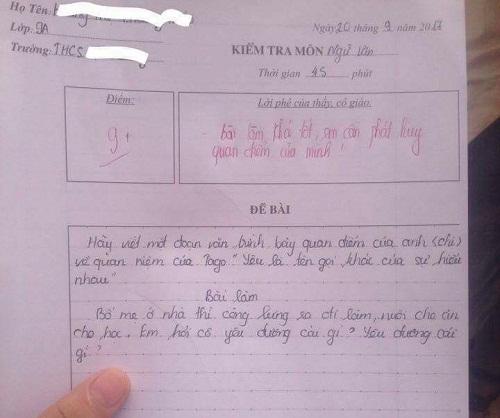 Họ Tên:
Ngày 20 tháng 9 năm 2017
Lớp: 9A
KIỂM TRA MÔN Ngữ Văn
Trường: THCS
Thời gian 45 phút
Điểm:
Lời phê của thầy, cô giáo.
9+
- bài làm khá tốt, em cần phát huy
quan điểm của mình!
ĐỀ BÀI
Hãy viết một đoạn văn trình bày quan điểm của anh (chị)
về quan niệm của Tago "Yêu là tên gọi khác của sự hiểu
nhau"
Bài làm
Bố mẹ ở nhà thì còng lưng ra đi làm, nuôi cho ăn
cho học. Em hỏi cô yêu đương cái gì? Yêu đương cái
gì?